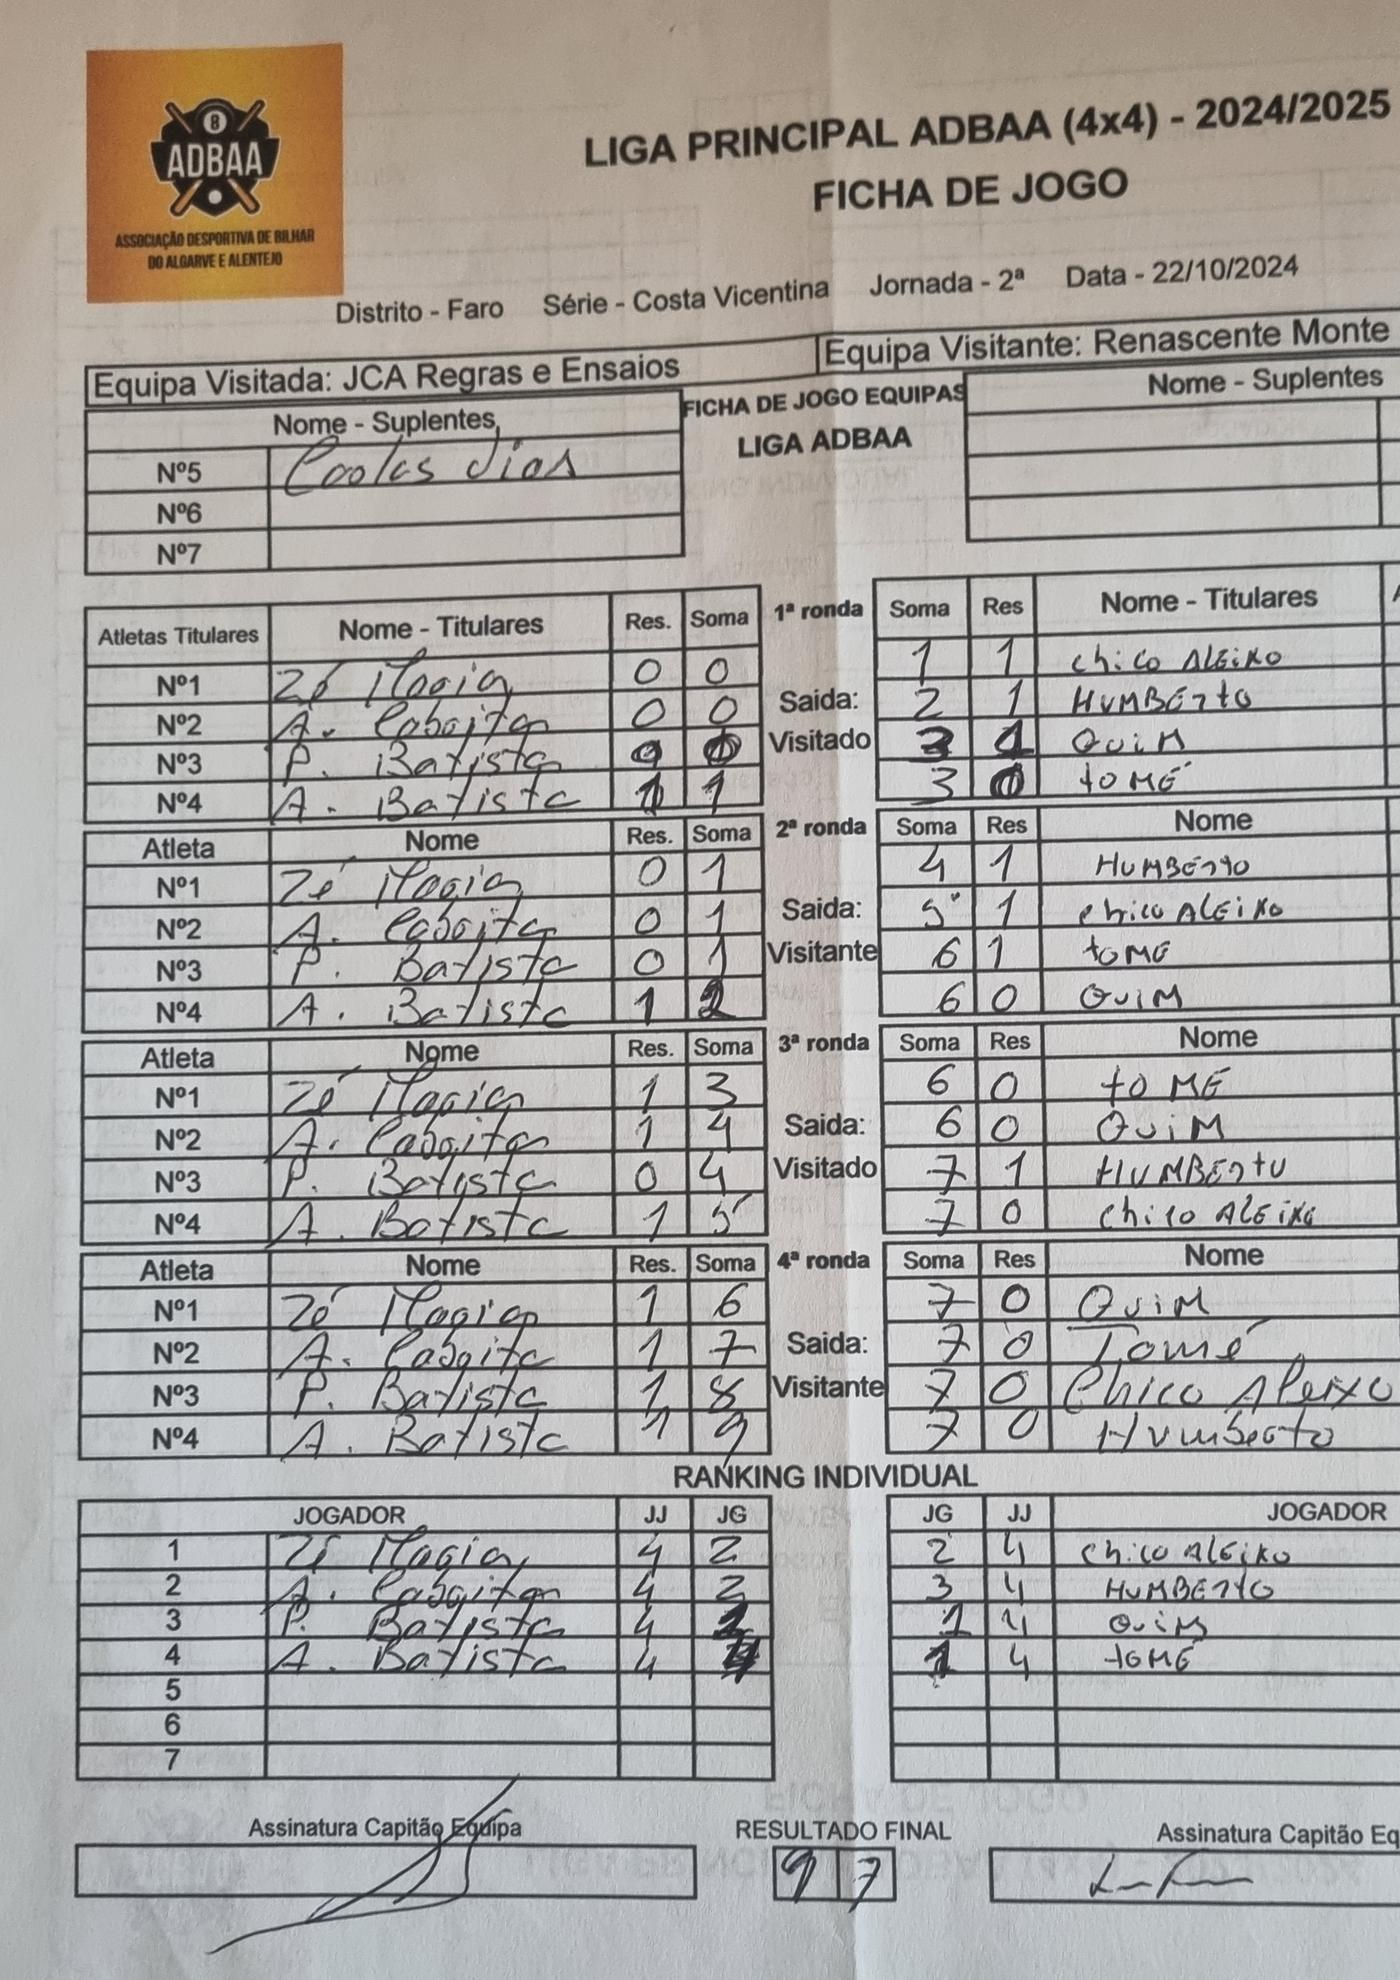 8
ADBAA
ASSOCIAÇÃO DESPORTIVA DE BILHAR
DO ALGARVE E ALENTEJO
LIGA PRINCIPAL ADBAA (4x4) - 2024/2025
FICHA DE JOGO
Distrito - Faro Série - Costa Vicentina Jornada - 2ª Data - 22/10/2024
Equipa Visitada: JCA Regras e Ensaios Equipa Visitante: Renascente Monte
Nome - Suplentes FICHA DE JOGO EQUIPAS Nome - Suplentes
LIGA ADBAA
Nº5 dias
Nº6
Nº7
Atletas Titulares Nome - Titulares Res. Soma 1ª ronda Soma Res Nome - Titulares
Nº1 Zé Magia 0 0 1 1 Chico ALEiXO
Nº2 A. Cabaita 0 0 Saida: 2 1 HUMBERTO
Nº3 P. Batista 0 0 Visitado 3 1 QuiM
Nº4 A. Batista 1 1 3 0 tOMÉ
Atleta Nome Res. Soma 2ª ronda Soma Res Nome
Nº1 Zé Magia 0 1 4 1 HUMBERTO
Nº2 A. Cabaita 0 1 Saida: 5 1 Chico ALEiXO
Nº3 P. Batista 0 1 Visitante 6 1 tOME
Nº4 A. Batista 1 2 6 0 QuiM
Atleta Nome Res. Soma 3ª ronda Soma Res Nome
Nº1 Zé Magia 1 3 6 0 tOMÉ
Nº2 A. Cabaita 1 4 Saida: 6 0 QuiM
Nº3 P. Batista 0 4 Visitado 7 1 HUMBERTO
Nº4 A. Batista 1 5 7 0 Chico ALEiXO
Atleta Nome Res. Soma 4ª ronda Soma Res Nome
Nº1 Zé Magia 1 6 7 0 QuiM
Nº2 A. Cabaita 1 7 Saida: 7 0 Tomé
Nº3 P. Batista 1 8 Visitante 7 0 Chico Aleixo
Nº4 A. Batista 1 9 7 0 Humberto
RANKING INDIVIDUAL
JOGADOR JJ JG JG JJ JOGADOR
1 Zé Magia 4 2 2 4 Chico ALEiXO
2 A. Cabaita 4 2 3 4 HUMBERTO
3 P. Batista 4 1 1 4 QuiM
4 A. Batista 4 4 1 4 tOMÉ
5
6
7
Assinatura Capitão Equipa RESULTADO FINAL Assinatura Capitão Eq
9 7